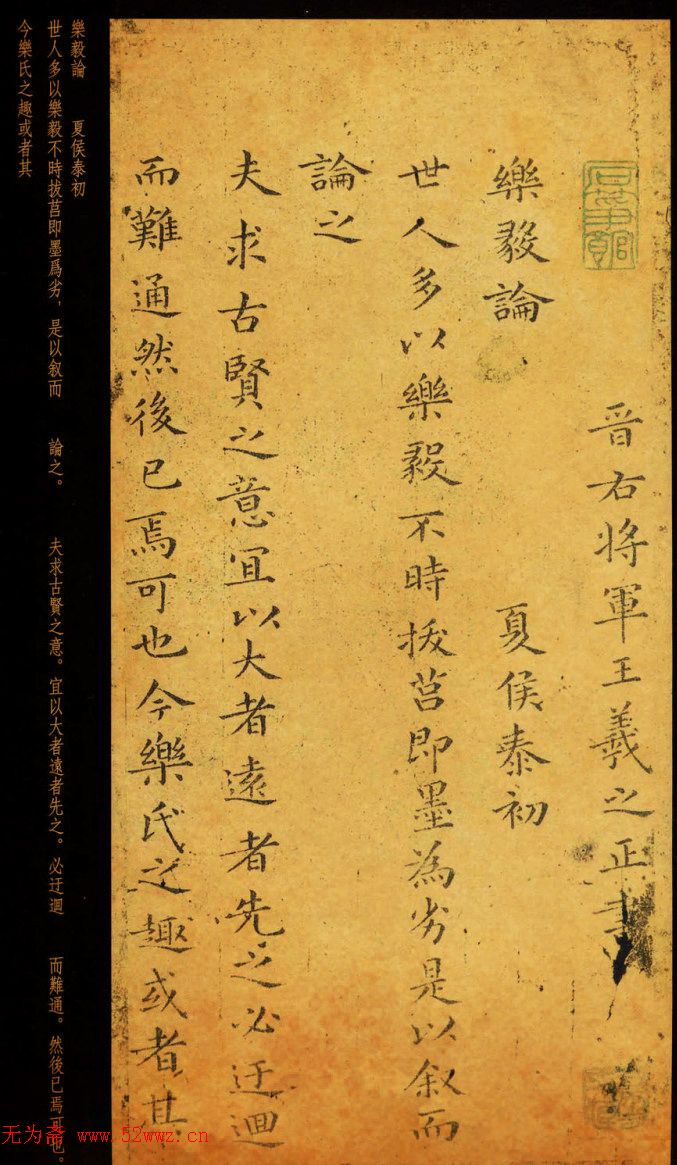 晋右将軍王羲之正書
樂毅論 夏侯泰初
世人多以樂毅不時拔莒即墨為劣是以叙而
論之
夫求古賢之意宜以大者遠者先之必迂迴
而難通然後已焉可也今樂氏之趣或者其
樂毅論 夏侯泰初
世人多以樂毅不時拔莒即墨爲劣,是以叙而 論之。 夫求古賢之意。宜以大者遠者先之。必迂迴 而難通。然後已焉可也。
今樂氏之趣或者其
无为斋 www.52wwz.cn